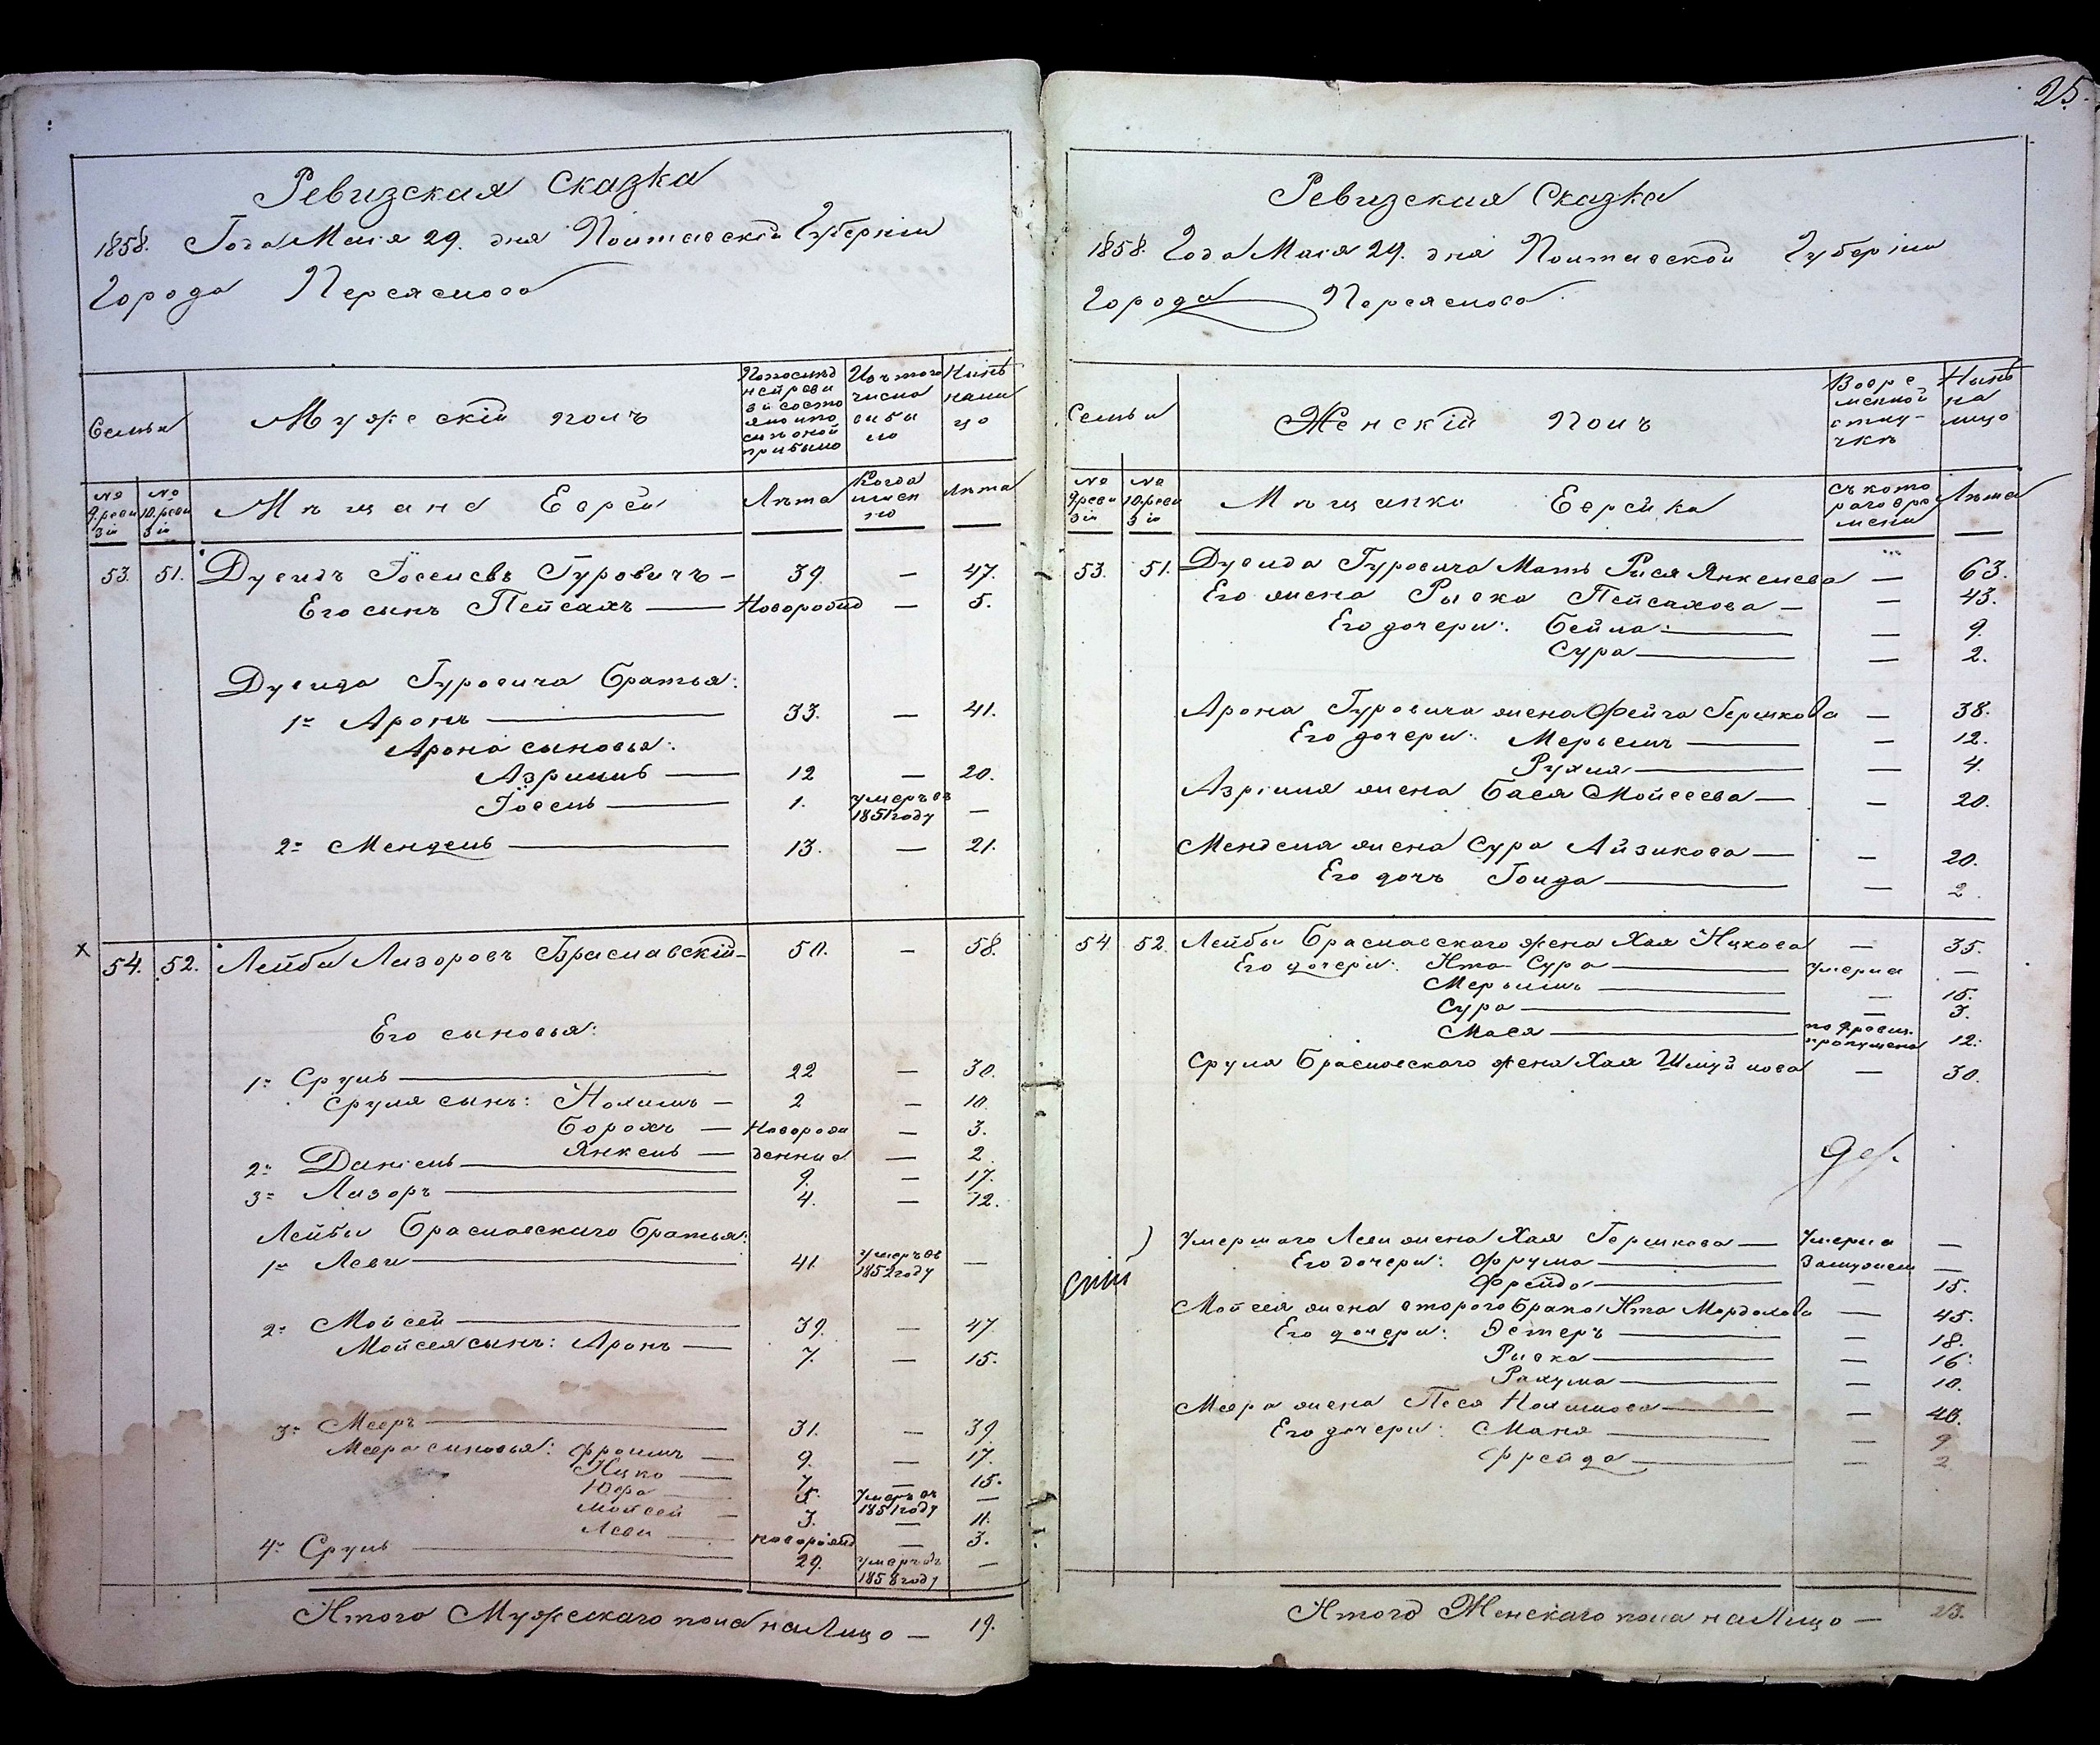 25.
Ревизская Сказка
1858. Года Мая 29. дня Полтавской Губерніи
Города Переяслова
Семьи
Мужескій полъ
По послѣд
ней реви
зіи состо
яло и по
слѣ оной
прибыло
Изъ того
числа
выбы
ло
Нынѣ
нали
цо
№ 9. реви зіи
№ 10. реви зіи
Мѣщане Евреи
Лѣта
Когда
имен
но
Лѣта
53. 51. Дувидъ Іоселевъ Гуровичъ — 39. — 47.
Его сынъ Пейсахъ — Новорожд — 5.
Дувида Гуровича братья:
1й Аронъ — 33. — 41.
Арона сыновья:
Азріиль — 12 — 20.
Іосель — 1. умеръ въ 1851 году —
2й Мендель — 13. — 21.
x 54. 52. Лейба Лазоровъ Браславскій — 50. — 58.
Его сыновья:
1й Сруль — 22 — 30.
Сруля сынъ: Нохимъ — 2 — 10.
Борохъ — Новорож — 3.
Янкель — денные — 2
2й Даніель — 9. — 17.
3й Лазоръ — 4. — 12.
Лейбы Браславскаго братья:
1й Леви — 41. умеръ въ 1852 году —
2й Мойсей — 39. — 47
Мойсея сынъ: Аронъ — 7. — 15.
3й Мееръ — 31. — 39.
Меера сыновья: Фроимъ — 9. — 17.
Ицко — 7 — 15.
Юфа — 5. Умеръ въ 1851 году —
Мойсей — 3. — 11.
Леви — новорожд — 3.
4й Сруль — 29. умеръ въ 1858 году —
Итого Мужескаго пола на лицо — 19.
Ревизская Сказка
1858. Года Мая 29. дня Полтавской Губерніи
Города Переяслова
Семьи
Женскій полъ
Во вре
менной
отлу-
чкѣ
Нынѣ
на
лицо
№ 9 реви зіи
№ 10. реви зіи
Мѣщанки Еврейки
съ кото
раго вре
мени
Лѣта
53. 51. Дувида Гуровича Мать Рися Янкелева — 63.
Его жена Рывка Пейсахова — — 43.
Его дочери: Бейла — — 9.
Сура — — 2.
Арона Гуровича жена Фейга Гершкова — 38.
Его дочери: Мерьемъ — — 12.
Рухля — — 4.
Азріиля жена Бася Мойсеева — — 20.
Менделя жена Сура Айзикова — — 20.
Его дочь Голда — — 2
54 52. Лейбы Браславскаго жена Хая Ицкова — 35.
Его дочери: Ита-Сура — умерла —
Мерьимъ — — 15.
Сура — — 3.
Мася — по 9 ревиз. пропущена 12.
Сруля Браславскаго жена Хая Шмуйлова — 30.
Умершаго Леви жена Хая Гершкова — Умерла —
Его дочери: Фрума — Замужем —
Фрейда — — 15.
Мойсея жена второго брака Ита Мордохова — 45.
Его дочери: Эстеръ — — 18.
Рывка — — 16.
Рахума — — 10.
Меера жена Песя Нохимова — — 40.
Его дочери: Маня — — 9
Фрейда — — 2
Итого Женскаго пола на лицо — 23.